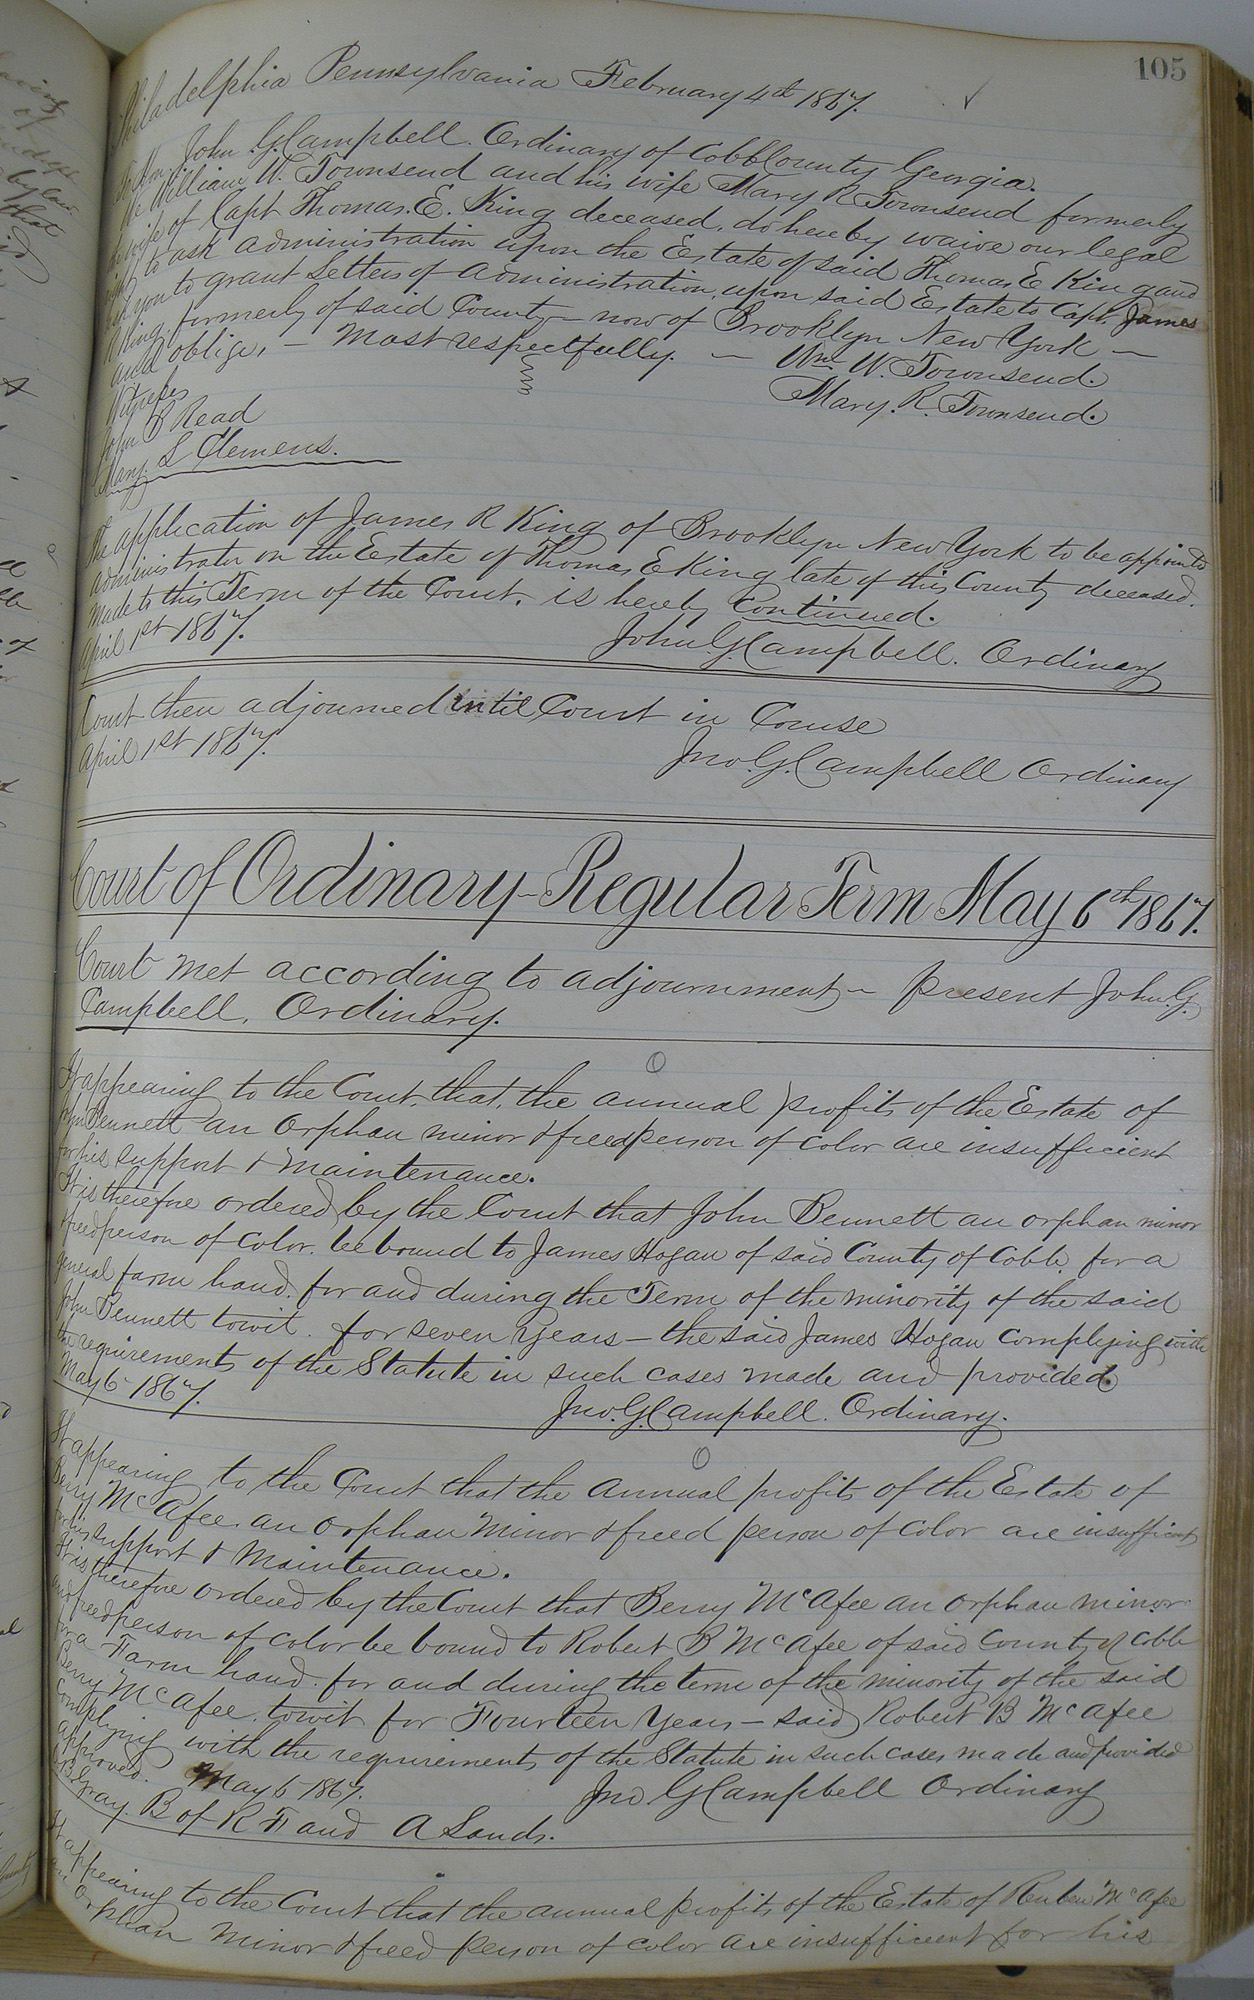 105
Philadelphia Pennsylvania February 4th 1867.
To Hon. John G. Campbell. Ordinary of Cobb County Georgia.
We William W. Townsend and his wife Mary R. Townsend formerly
the wife of Capt Thomas. E. King deceased, do hereby waive our legal
right to ask administration upon the Estate of said Thomas E King and
ask you to grant Letters of administration, upon said Estate to Capt. James
R King, formerly of said County - now of Brooklyn New York -
and oblige, - Most respectfully. - Wm. W. Townsend.
Witnesses Mary. R. Townsend.
John B Read
Mary. L Clemens.
The application of James R King of Brooklyn New York to be appointed
administrator on the Estate of Thomas E King late of this County deceased.
Made to this Term of the Court, is hereby Continued.
April 1st 1867. John. G. Campbell. Ordinary
Court then adjourned until Court in Course
April 1st 1867. Jno. G. Campbell Ordinary
Court of Ordinary - Regular Term May 6th 1867.
Court met according to adjournment - present John. G.
Campbell, Ordinary.
It appearing to the Court, that, the annual profits of the Estate of
John Bennett an orphan minor & freed person of color are insufficient
for his support & maintenance.
It is therefore ordered by the Court that John Bennett an orphan minor
& freed person of color. be bound to James Hogan of said County of Cobb, for a
general farm hand. for and during the Term of the minority of the said
John Bennett towit. for seven years - the said James Hogan complying with
the requirements of the Statute in such cases made and provided.
May 6 1867. Jno. G. Campbell. Ordinary.
It appearing to the Court that the annual profits of the Estate of
Berry McAfee. an orphan Minor & freed person of color are insufficient
for his support & Maintenance.
It is therefore ordered by the Court that Berry McAfee an orphan minor
and freed person of color be bound to Robert B McAfee of said County of Cobb
for a Farm hand. for and during the term of the minority of the said
Berry McAfee. towit for Fourteen Years - said Robert B McAfee
complying with the requirements of the Statute in such cases made and provided
Approved. May 6 1867. Jno G Campbell Ordinary
Gray. B of R F and A Lands.
It appearing to the Court that the annual profits of the Estate of Reuben McAfee
an Orphan Minor & freed person of color are insufficient for his